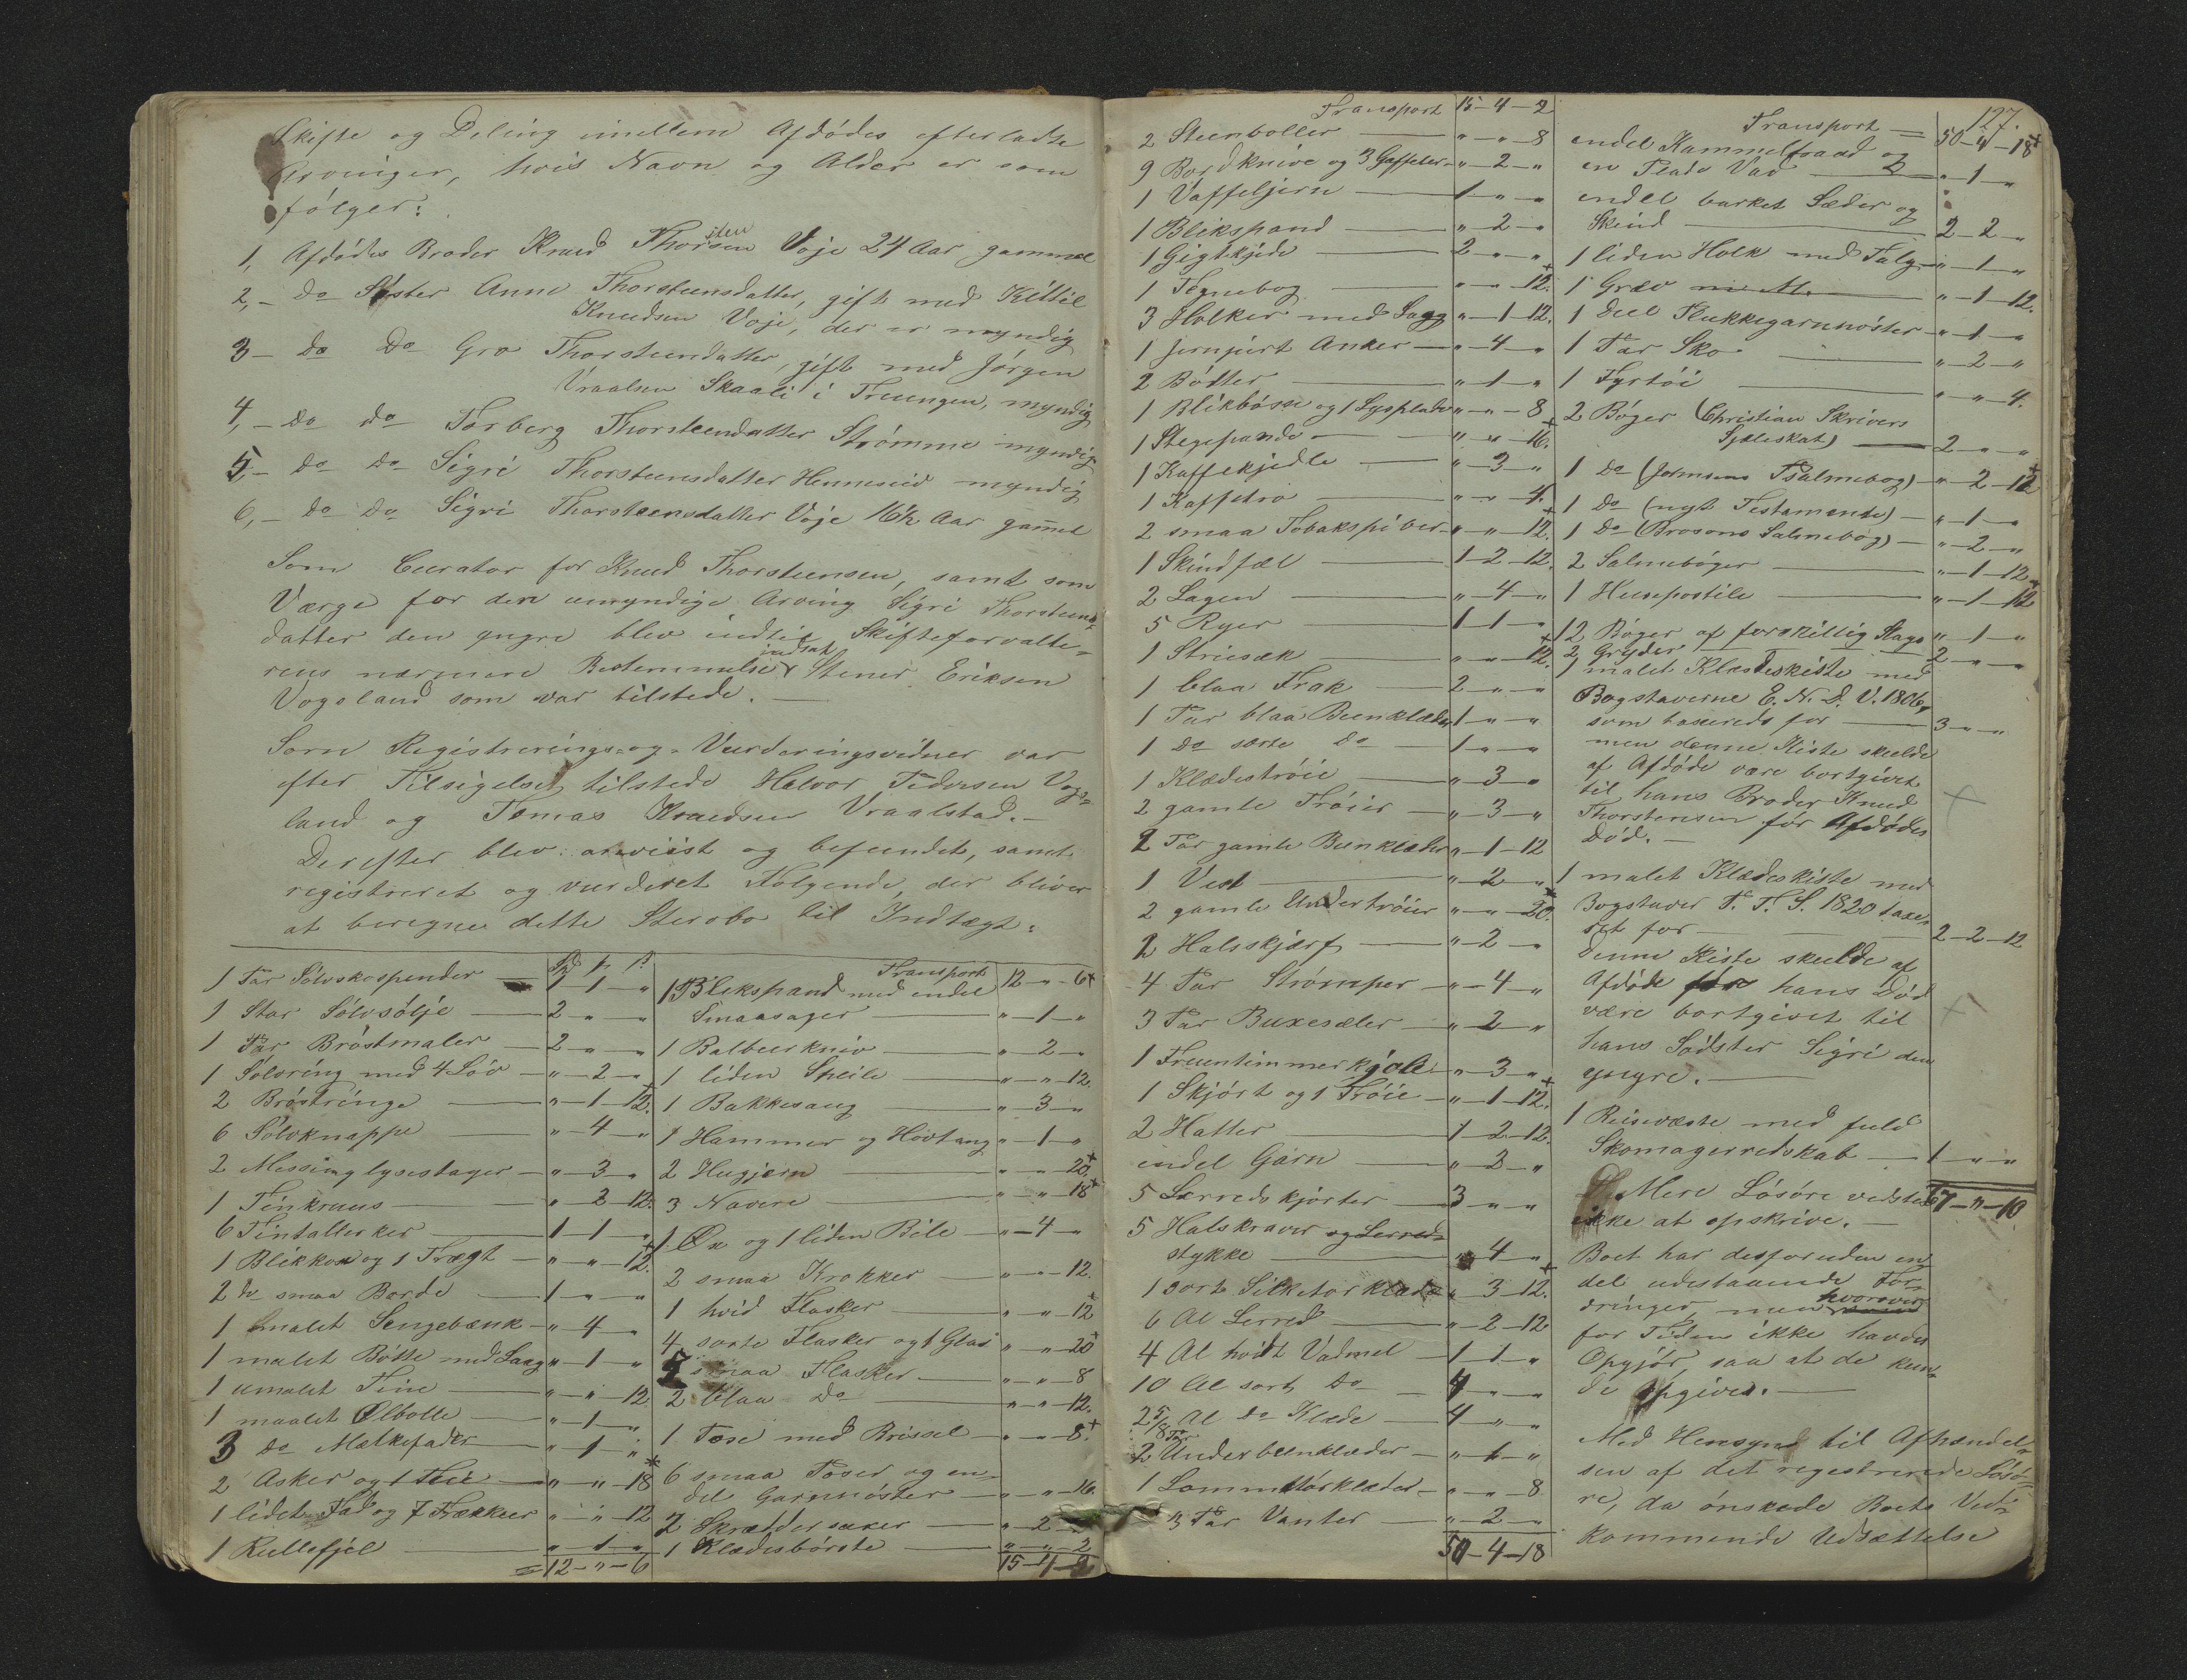 Skifte og Deling imellem Afdødes efterladte
Arvinger, hvis Navn og Alder er som
følger:
1, Afdødes Broder Knud Thorsteensen Voje 24 Aar gammel
2,- Do Søster Anne Thorsteensdatter, gift med Kittil
Knudsen Voje, der er myndig
3- Do Do Gro Thorsteensdatter, gift med Jørgen
Vraalsen Skaali i Treungen, myndig
4,- Do do Torberg Thorsteendatter Strømme myndig
5- Do Do Sigri Thorsteensdatter Henneseid myndig
6,- Do Do Sigri Thorsteensdatter Voje 16½ Aar gaml
Som Curator for Knud Thorsteensen, samt som
Værge for den umyndige Arving Sigri Thorsteens-
datter den yngre blev indtil Skifteforvalte-
rens nærmere Bestemmelse indsat Stener Eriksen
Vogsland som var tilstede.
Som Registrerings- og Vurderingsvidner var
efter Tilsigelse tilstede Halvor Pedersen Vogs-
land og Tomas Knudsen Vraalstad.-
Derefter blev anviist og befundet, samt
registreret og vurderet Følgende, der bliver
at beregne dette Sterbo til Indtægt:
1 Par Sølvskospender 1-1-"
1 Stor Sølvsølje 2-"-"
1 Par Brøstmaler 2-"-"
1 Sølvring med 4 Løv "-2-"
2 Brøstringe "-1-12.
6 Sølvknappe "-4-"
2 Messing lysestager "-3-"
1 Tinkruus "-2-12.
6 Tintallerker 1-1-"
1 Blikkan og 1 Tragt "-"-12.
2 smaa Borde 1-"-"
1 malet Sengebænk "-4-"
1 malet Bøtte med Laag "-1-"
1 umalet Tine "-"-12
1 maalet Ølbolle "-1-"
3 Do Mælkefader "-1-"
2 Asker og 1 "-"-18
1 lidet Fad og 7 "-"-12
1 Rullefjel "-1-"
12-"-6
Transport 12-"-6
1 Blikspand med endel
Smaasager "-1-"
1 Balbeerkniv "-2-"
1 liden Speile "-"-12.
1 Bakkesaug "-3-"
1 Hammer og Hovtang "-1-"
2 Hugjern "-"-20
3 Navere "-"-18
1 Øx og 1 liden Bile "-4-"
2 smaa Krokker "-"-12.
1 hvid Flasker "-"-12
4 sorte Flasker og 1 Glas "-"-20
5 smaa Flasker "-"-8
2 blaa Do "-"-12.
1 Pose med Brissel "-"-8
6 smaa Poser og en-
del Garnnøster "-"-16.
2 Skræddersaxer "-2-"
1 Klædesbørste "-"-2
15-4-2
Transport 15-4-2
2 Steenboller "-"-8
9 Bordknive og 3 Gaffeler "-2-"
1 Vaffeljern 1-"-"
1 Blikspand "-2-"
1 Gigtkjede 2-"-"
1 Tegnebog "-"-12.
3 Holker med Lagg "-1-12.
1 jernjurt Anker "-4-"
2 Bøtter "-1-"
1 Blikbøsse og 1 Lyseplade "-"-8
1 Stegepande "-"-16.
1 Kaffekjedle "-3-"
1 Kaffetro "-"-4.
2 smaa Tobakspiber "-"-12.
1 Skindfæl 1-2-12.
2 Lagen "-4-"
5 Ryer 1-1-"
1 Striesæk "-"-12.
1 blaa Frak 2-"-"
1 Par blaa Beenklæder 1-"-"
1 Do sorte Do 1-"-"
1 Klædestrøie "-3-"
2 gamle Trøier "-3-"
2 Par gamle Beenklæder "-1-12
1 Vest "-2-"
2 gamle Undertrøier "-"-20.
2 Halsskjærf "-2-"
4 Par Strømper "-4-"
3 Par Buxesæler "-2-"
1 Fruentimmerkjole "-3-"
1 Skjørt og 1 Trøie "-1-12.
2 Hatter 1-2-12.
endel Garn "-3-"
5 Lærredskjorter 3-"-"
5 Halskraver og Lerreds-
stykke "-4-"
1 sort Silketørklæde "-3-12.
6 Al Lerred "-2-12
4 Al hvidt Vadmel 1-1-"
10 Al sort Do 4-"-"
2 5/8 Al do Klæde 4-"-"
2 Par Underbeenklæder "-1-"
1 Lommetørklæder "-"-8
3 Par Vanter "-2-"
50-4-18
127.
Transport 50-4-18
endel Kammelfraad og
en Plade Vad "-1-"
endel barket Læder og
Skind 2-2-"
1 liden Holk med Talg "-1-"
1 Græv "-1-12.
1 deel Plukkegarnnøster "-1-"
1 Par Sko "-2-"
1 Fyrtøi "-"-4.
2 Bøger (Christian Skrivers
Sjæleskat) 2-"-"
1 Do (Johnsens Psalmebog) "-2-12
1 Do (nyt Testamente) "-1-"
1 Do (Brosons Salmebog) "-2-"
2 Salmebøger "-1-12
1 Huuspostile "-1-12
12 Bøger af forskillig Slags "-1-"
2 Gryder 2-"-"
1 malet Klædeskiste med
Bogstaverne E. N. D. V. 1806,
som taxereds for 3-"-"
men denne Kiste skulde
af Afdøde være bortgivet
til hans Broder Knud
Thorsteensen før Afdødes
Død.-
1 malet Klædeskiste med
Bogstaver T. T. S. 1820 taxe-
ret for 2-2-12
Denne Kiste skulde af
Afdøde før hans Død
være bortgivet til
hans Sødster Sigri den
yngre.
1 Reisevæske med fuld
Skomagerredskab 1-"-"
Mere Løsøre vedstod 67-"-10
ikke at opskrive.
Boet har desforuden en
del udestaaende For-
dringer, men hvorover
for Tiden ikke havdes
Opgjør, saa at de kun-
de opgives.
Med Hensynd til Afhændel-
sen af det registrerede Løsø-
re, da ønskede Boets Ved-
kommende Udsættelse